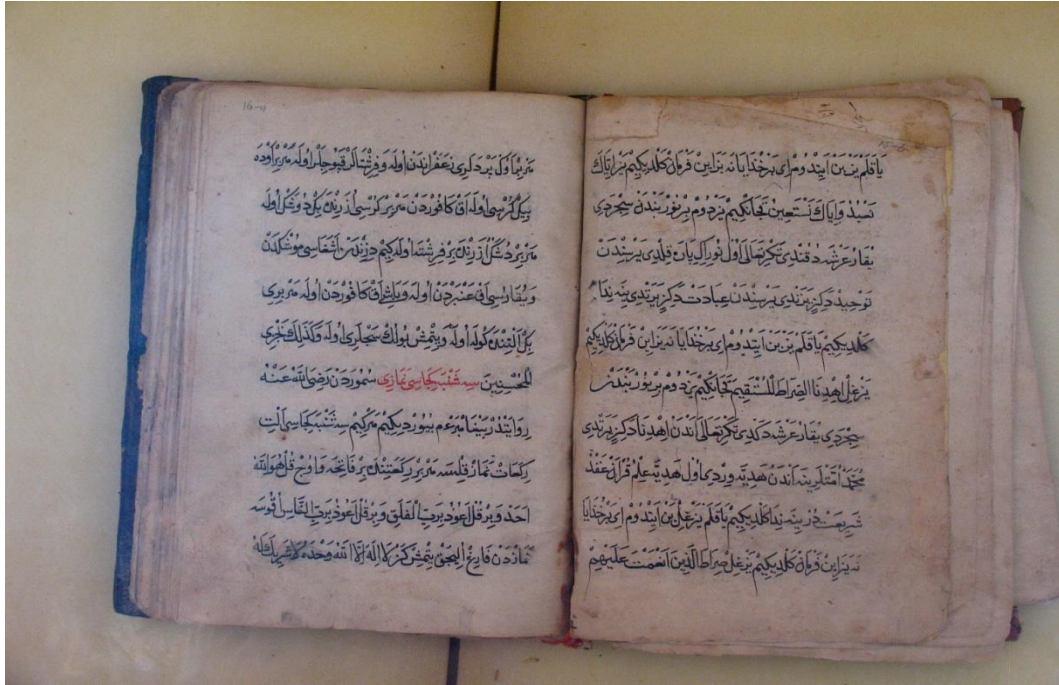 يا قلم يزبن ايتدوم اى برخدايا نه يزاين فرمان كلديكيم يز اياك
نعبد واياك نستعين تجانكيم يزدوم بر نور بندن سيجردى
يقارعرشه دقندى تكرتعالى اول نور اكى پاره قلدى برسندن
توحيد دكزيرتدى برسندن عبادت دكزيرتدى ينه ندا
كلديكيم يا قلم يزبن ايتدوم اى برخدايا نه يزاين فرمان كلديكيم
يزغل اهدنا الصراط المستقيم تجانكيم يزدوم بر نور بندن
سيجردى يقارعرشه دكدى تكرتعالى اندن اهدنا دكزيرتدى
محمد امتلرينه اندن هديه وردى اول هديه علم قرآن عقد
شريعت در ينه ندا كلديكيم يا قلم يزغل بن ايتدوم اى برخدايا
نه يزاين فرمان كلديكيم يزغل صراط الذين انعمت عليهم
16-11
يريرى زعفراندن اوله وفرشتالر قبوجلر اوله هر بر اوده
بيك كرسى اوله اق كافوردن هر بر كرسى ازرنه بيك دوشك اوله
هر بر دشك ازرنه بر فرشته اوله كيم دزندن اشغاسى موشكدن
ويقاراسى اق عنبردن اوله وباشى اق كافوردن اوله هر برى
بيك التنده كوله اوله ويتمش بولك سجلرى اوله وكذلك نجزى
المحسنين سه شنبه كجاسى نمازى سموردن رضى الله عنه
روايتدر پيغامبر عم بيورديكيم هركيم سه شنبه كجاسى الت
ركعات نماز قلسه هر بر ركعتنده بر فاتحه واوچ قل هو الله
احد وبر قل اعوذ برب الفلق وبر قل اعوذ برب الناس اقوسه
نمازدن فارغ اليجق يتمش كز لا اله الا الله وحده لا شريك له